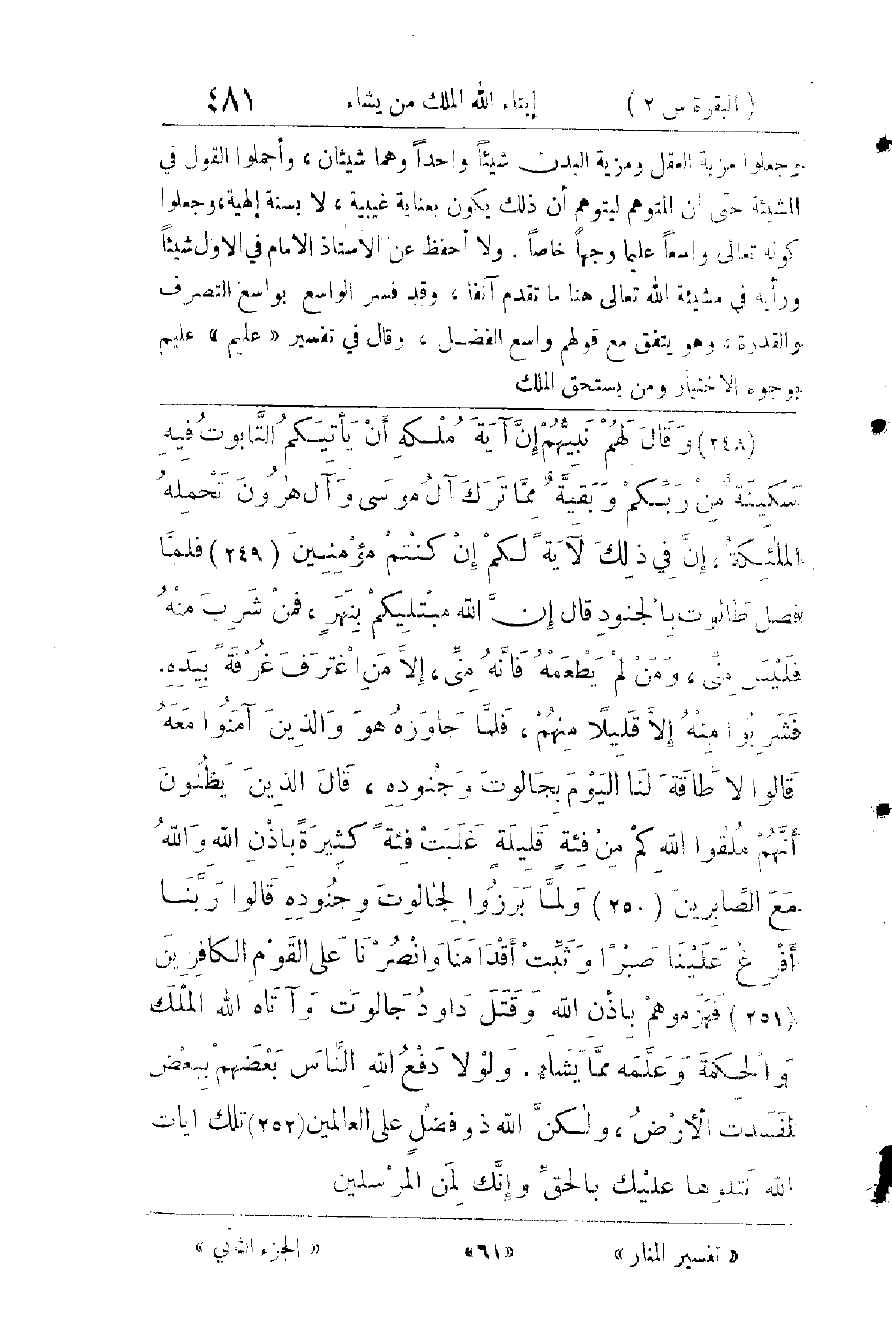 ( البقرة س ٢ ) إيتاء الله الملك من يشاء ٤٨١
وجعلوا مزية العقل ومزية البدن شيئاً واحداً وهما شيئان ، وأجملوا القول في
المشيئة حتى ان المتوهم ليتوهم أن ذلك يكون بعناية غيبية ، لا بسنة إلهية ، وجعلوا
كونه تعالى واسعاً عليما وجهاً خاصاً . ولا أحفظ عن الأستاذ الامام في الاول شيئاً
ورأيه في مشيئة الله تعالى هنا ما تقدم آنفا ، وقد فسر الواسع بواسع التصرف
والقدرة ، وهو يتفق مع قولهم واسع الفضل ، وقال في تفسير « عليم » عليم
بوجوه الاختيار ومن يستحق الملك
(٢٤٨) وَقَالَ لَهُمْ نَبِيُّهُمْ إِنَّ آيَةَ مُلْكِهِ أَنْ يَأْتِيَكُمُ التَّابُوتُ فِيهِ
سَكِينَةٌ مِنْ رَبِّكُمْ وَبَقِيَّةٌ مِمَّا تَرَكَ آلُ موسَى وَآل هٰرُونَ تَحْمِلهُ
المَلٰئِكَةُ ، إِنَّ فِي ذٰلِكَ لَآيَةً لَكُمْ إِنْ كُنْتُمْ مؤْمنِينَ (٢٤٩) فلمَّا
فصل طَالُوت بالجنودِ قال إِنَّ الله مبْتليكمْ بِنَهَرٍ ، فَمَنْ شَرِبَ مِنْهُ
فَلَيْسَ مِنِّي ، وَمَنْ لَمْ يَطْعَمْهُ فَانَّهُ مِنِّي ، إِلاَّ مَنِ اغْتَرَفَ غُرْفَةً بِيَدِهِ .
فَشَرِبُوا مِنْهُ إِلاَّ قَلِيلًا مِنهُمْ ، فَلمَّا جَاوَزَهُ هوَ وَالذِينَ آمَنُوا مَعَهُ
قَالوا لا طَاقَةَ لنَا اليَوْمَ بِجَالوتَ وَجُنوده ، قَالَ الذِينَ يَظُنُونَ
أَنَّهُمْ مُلٰقُوا اللهِ كمْ مِنْ فِئةٍ قَلِيلَةٍ غَلَبَتْ فِئةً كثِيرَةً باذْنِ الله وَاللهُ
مَعَ الصَّابِرِينَ (٢٥٠) وَلمَّا بَرَزُوا لِجَالوتَ وجنُودهِ قَالوا رَبَّنَا
أَفْرِغْ عَلَيْنَا صَبْرًا وَثَبِّتْ أَقْدَامَنَا وَانْصُرْنَا عَلى القَوْمِ الكافِرِينَ
(٢٥١) فَهَزَموهمْ بِاذْنِ اللهِ وَقَتَلَ دَاودُ جَالوتَ وَآتَاه اللهُ المُلْكَ
وَالحِكمَةَ وَعَلَّمَه ممَّا يَشَاءُ . وَلوْلا دَفْعُ اللهِ النَّاسَ بَعْضَهمْ بِبعْض
لفَسَدت الأَرْضُ ، ولكنَّ الله ذو فضْلٍ على العالمين (٢٥٢) تلك ايات
الله نَتلوها عليْك بالحقِّ وإِنَّك لمن المرْسلين
« تفسير المنار » «٦١» « الجزء الثاني »